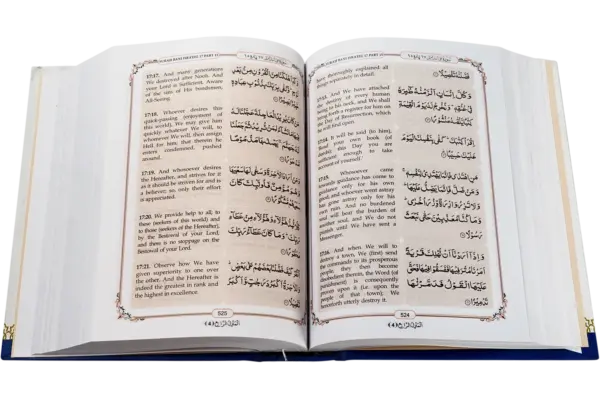 SURAH BANI ISRAEEL 17 PART 15
have thoroughly explained all
things separately in detail.
17:13. And We have attached
the destiny of every human
being to his neck, and We shall
bring forth a register for him on
the Day of Resurrection, which
he will find open.
17:14. It will be said (to him),
"Read your own book (of
deeds); this Day you are
sufficient enough to take
account of yourself."
17:15. Whosoever came
towards guidance has come to
guidance only for his own
good; and whoever went astray
has gone astray only for his
own ruin. And no burdened
soul will bear the burden of
another soul, and We do not
punish until We have sent a
messenger.
17:16. And when We will to
destroy a town, We (first) send
the commands to its prosperous
people, they then become
disobedient therein, the Word (of
punishment) is consequently
proven upon it (i.e. upon the
people of that town); We
henceforth utterly destroy it.
فَصَّلْنٰهُ تَفْصِيْلًا
وَكُلَّ اِنْسَانٍ اَلْزَمْنٰهُ طٰٓئِرَهٗ
فِيْ عُنُقِهٖ وَنُخْرِجُ لَهٗ يَوْمَ الْقِيٰمَةِ
كِتٰبًا يَّلْقٰىهُ مَنْشُوْرًا
اِقْرَاْ كِتٰبَكَ كَفٰى بِنَفْسِكَ الْيَوْمَ
عَلَيْكَ حَسِيْبًا
مَنِ اهْتَدٰى فَاِنَّمَا يَهْتَدِيْ لِنَفْسِهٖ
وَمَنْ ضَلَّ فَاِنَّمَا يَضِلُّ عَلَيْهَا
وَلَا تَزِرُ وَازِرَةٌ وِّزْرَ اُخْرٰى
وَمَا كُنَّا مُعَذِّبِيْنَ حَتّٰى نَبْعَثَ
رَسُوْلًا
وَاِذَآ اَرَدْنَآ اَنْ نُّهْلِكَ قَرْيَةً
اَمَرْنَا مُتْرَفِيْهَا فَفَسَقُوْا فِيْهَا فَحَقَّ
عَلَيْهَا الْقَوْلُ فَدَمَّرْنٰهَا
تَدْمِيْرًا
524
SURAH BANI ISRAEEL 17 PART 15
17:17. And many generations
We destroyed after Nooh. And
your Lord is Sufficient, Aware
of the sins of His bondsmen,
All-Seeing.
17:18. Whoever desires this
quick-passing (enjoyment of
this world), We may give him
quickly whatever We will, to
whomever We will, then assign
Hell for him; that therein he
enters condemned, pushed
around.
17:19. And whosoever desires
the Hereafter, and strives for it
as it should be striven for and is
a believer; so, only their effort
is appreciated.
17:20. We provide help to all; to
these (seekers of this world) and
to those (seekers of the Hereafter),
by the Bestowal of your Lord;
and there is no stoppage on the
Bestowal of your Lord.
17:21. Observe how We have
given superiority to one over
the other. And the Hereafter is
indeed the greatest in rank and
the highest in excellence.
وَكَمْ اَهْلَكْنَا مِنَ الْقُرُوْنِ مِنْ بَعْدِ
نُوْحٍ وَكَفٰى بِرَبِّكَ بِذُنُوْبِ عِبَادِهٖ
خَبِيْرًا بَصِيْرًا
مَنْ كَانَ يُرِيْدُ الْعَاجِلَةَ عَجَّلْنَا
لَهٗ فِيْهَا مَا نَشَآءُ لِمَنْ نُّرِيْدُ ثُمَّ
جَعَلْنَا لَهٗ جَهَنَّمَ يَصْلٰىهَا مَذْمُوْمًا
مَّدْحُوْرًا
وَمَنْ اَرَادَ الْاٰخِرَةَ وَسَعٰى لَهَا سَعْيَهَا
وَهُوَ مُؤْمِنٌ فَاُولٰٓئِكَ كَانَ
سَعْيُهُمْ مَّشْكُوْرًا
كُلًّا نُّمِدُّ هٰٓؤُلَآءِ وَهٰٓؤُلَآءِ مِنْ عَطَآءِ
رَبِّكَ وَمَا كَانَ عَطَآءُ رَبِّكَ
مَحْظُوْرًا
اُنْظُرْ كَيْفَ فَضَّلْنَا بَعْضَهُمْ عَلٰى بَعْضٍ
وَلَلْاٰخِرَةُ اَكْبَرُ دَرَجٰتٍ وَّاَكْبَرُ
تَفْضِيْلًا
525